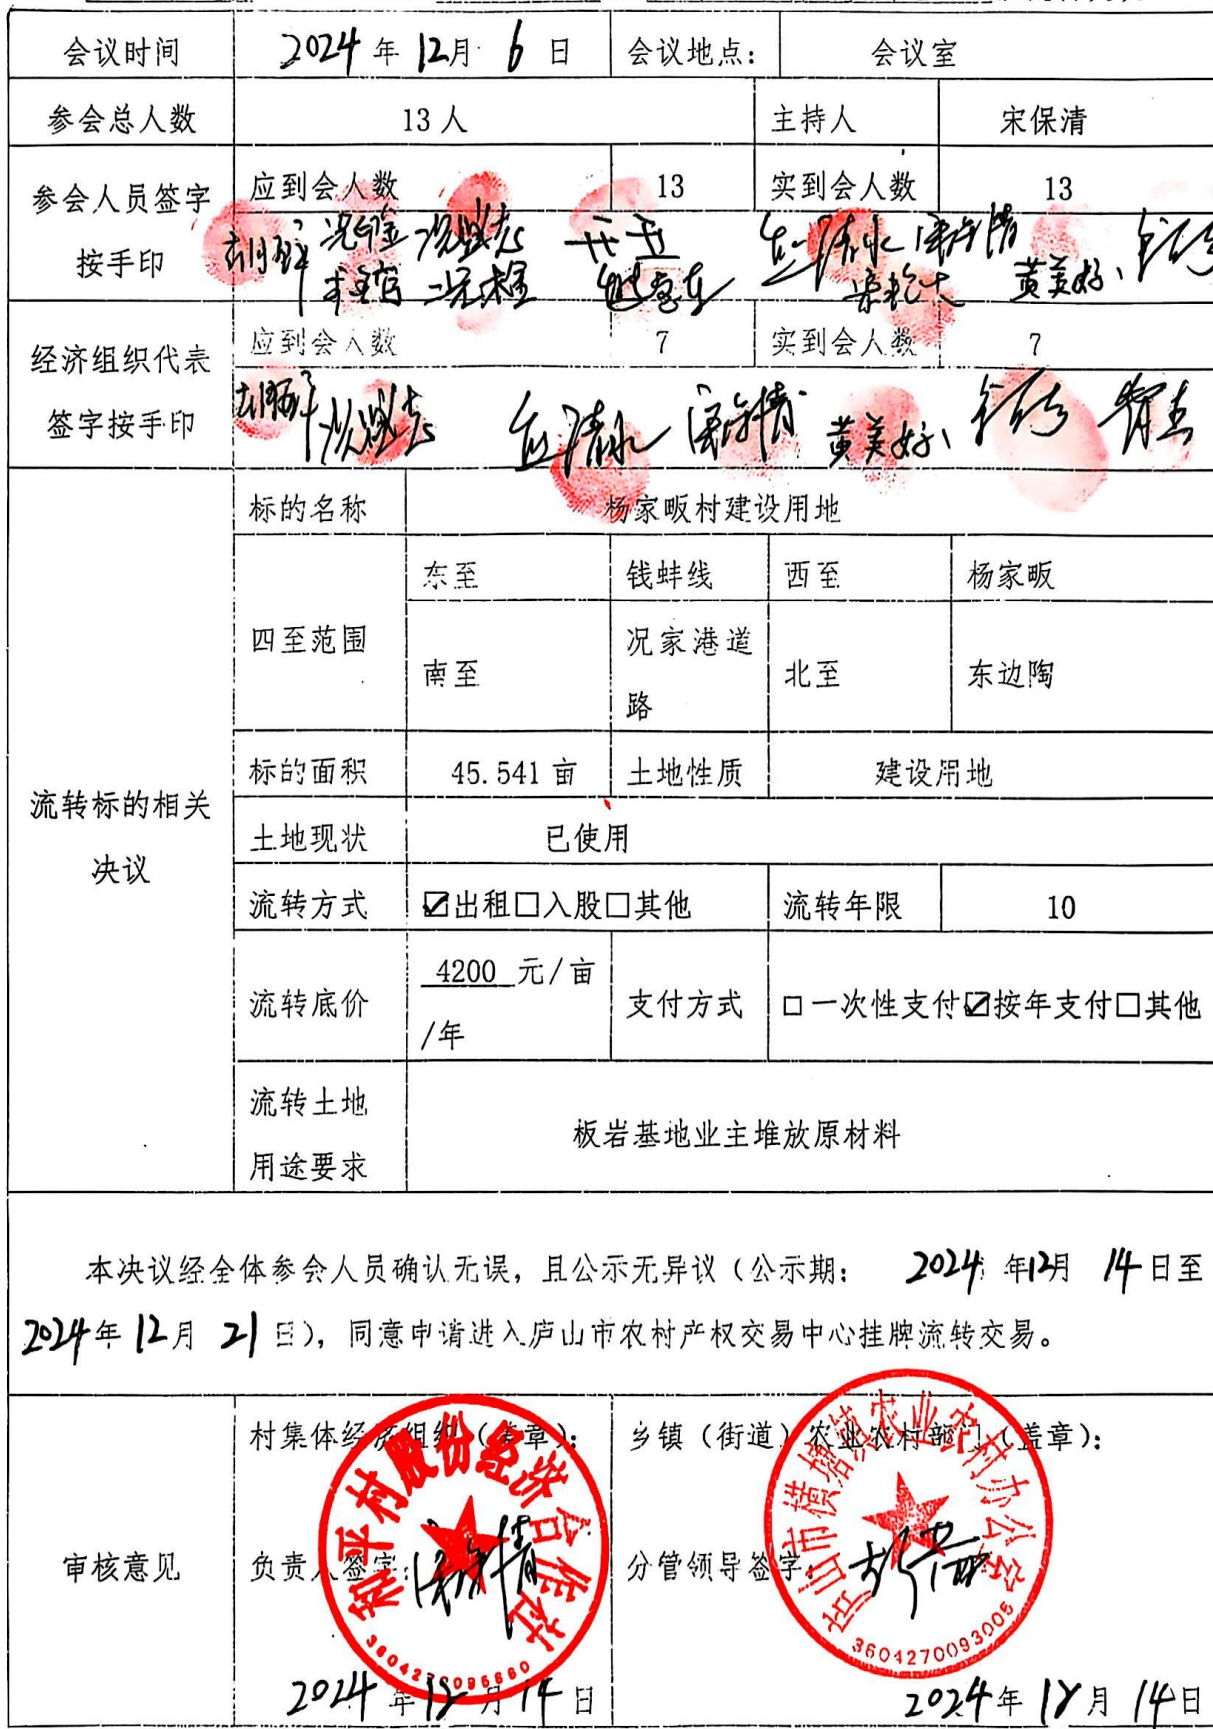 会议时间 2024年12月6日 会议地点： 会议室
参会总人数 13人 主持人 宋保清
参会人员签字
按手印
应到会人数 13 实到会人数 13
黄美好
经济组织代表
签字按手印
应到会人数 7 实到会人数 7
黄美好
流转标的相关
决议
标的名称 杨家畈村建设用地
四至范围
东至 钱蚌线 西至 杨家畈
南至 况家港道
路
北至 东边陶
标的面积 45.541亩 土地性质 建设用地
土地现状 已使用
流转方式 ☑出租□入股□其他 流转年限 10
流转底价 4200 元/亩
/年
支付方式 □一次性支付☑按年支付□其他
流转土地
用途要求
板岩基地业主堆放原材料
本决议经全体参会人员确认无误，且公示无异议（公示期： 2024年12月14日至
2024年12月21日），同意申请进入庐山市农村产权交易中心挂牌流转交易。
审核意见
村集体经济组织（盖章）：
和平村股份经济合作社
负责人签字：
2024年12月14日
乡镇（街道）农业农村部门（盖章）：
庐山市横塘镇农业农村办公室
分管领导签字：
3604270093005
2024年12月14日